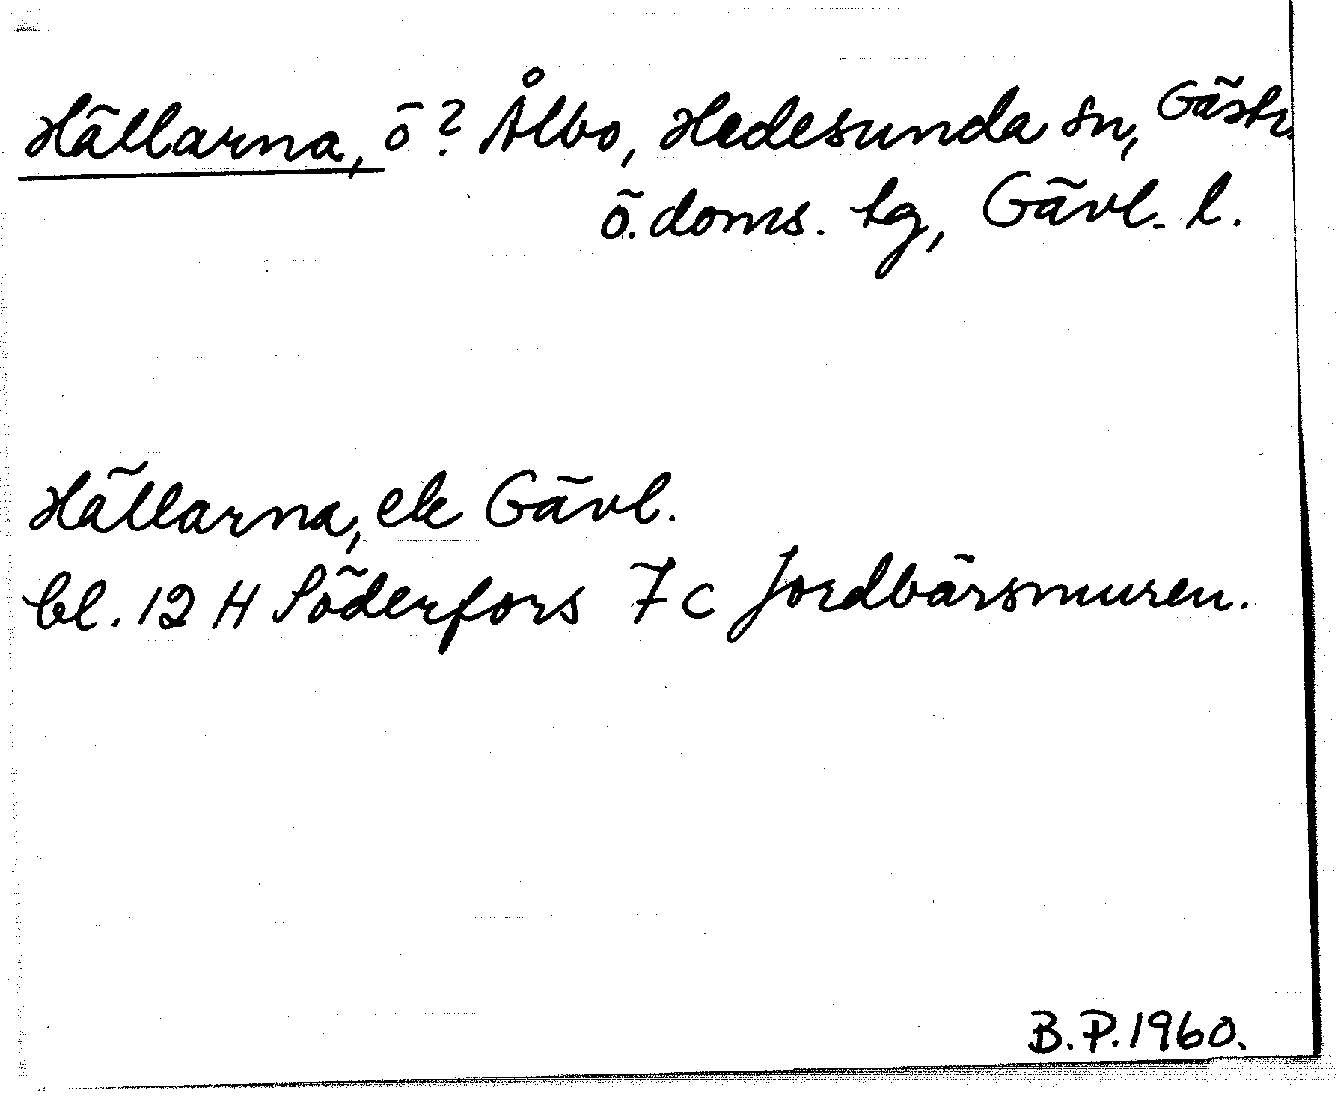 Hällarna, ö? Ålbo, Hedesunda sn, Gästr.
ö. doms. lg, Gävl. l.
Hällarna, ek Gävl.
bl. 12 H Söderfors 7 c Jordbärsmuren.
B.P. 1960.